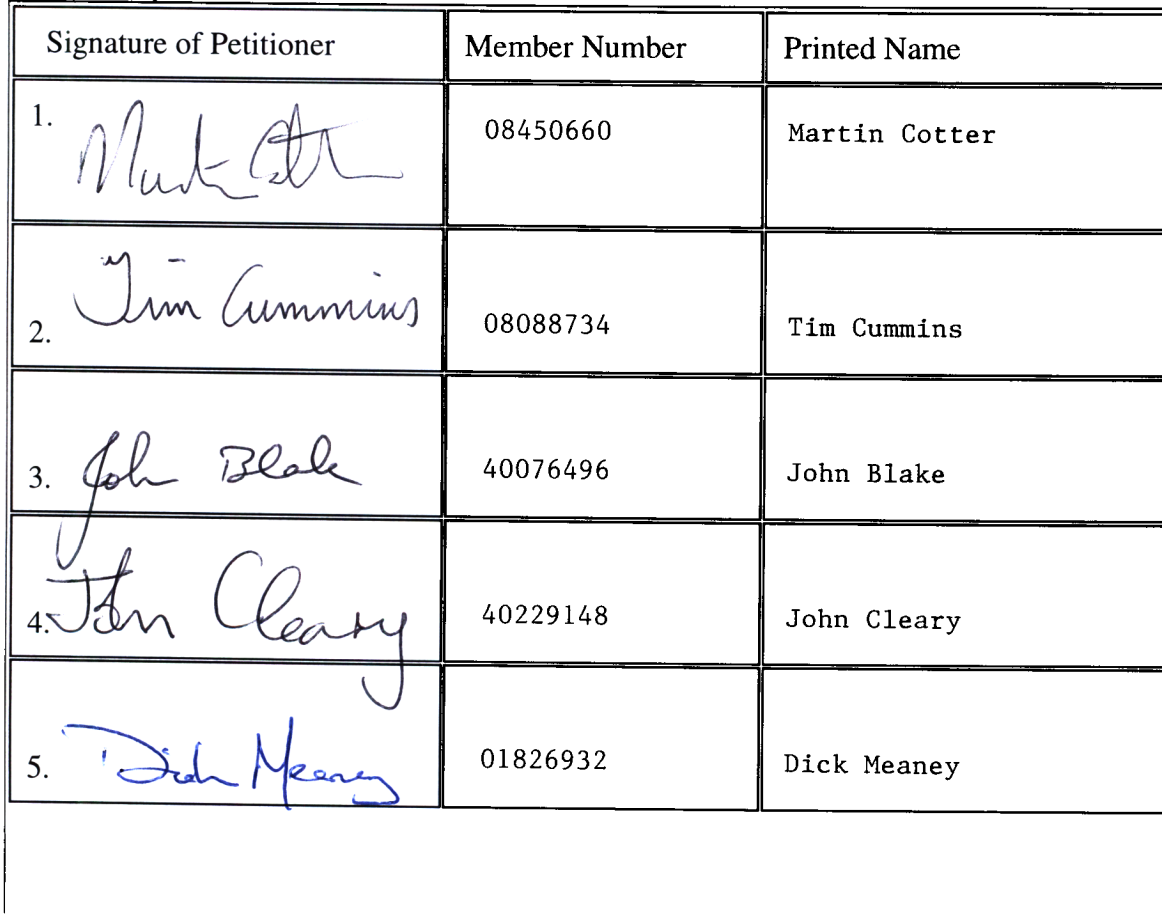 Signature of Petitioner Member Number Printed Name
1. Martin Cotter 08450660 Martin Cotter
2. Tim Cummins 08088734 Tim Cummins
3. John Blake 40076496 John Blake
4. John Cleary 40229148 John Cleary
5. Dick Meaney 01826932 Dick Meaney